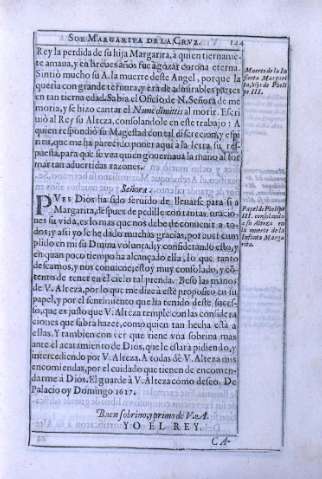 SOR MARGARITA DE LA CRVZ. 124
Rey la perdida de su hija Margarita, a quien tiernamente
amaua, y en breues años fue a gozar corona eterna.
Sintió mucho su A. la muerte deste Angel, porque la
queria con grande ternura, y era de admirables partes
en tan tierna edad. Sabia el Oficio de N. Señora de memoria,
y se hizo cantar el Nunc dimittis al morir. Escriuió
al Rey su Alteza, consolandole en este trabajo: A
quien respondió su Magestad con tal discrecion, y espiritu,
que me ha parecido poner aqui a la letra su respuesta,
para que se vea quien gouernaua la mano al formar
tan aduertidas razones.
Muerte de la Infanta
Margarita,
hija de Felipe
III.
Señora.
PVES Dios ha sido seruido de lleuarse para si a
Margarita, despues de pedille con tantas oraciones
su vida, es lo mas que nos debe de conuenir a todos;
y assi yo le he dado muchas gracias, por que se cumplido
en mi su Diuina voluntad, y considerando esto, y
en quan poco tiempo ha alcançado ella, lo que tanto
deseamos, y nos conuiene; estoy muy consolado, y contento
de tener en el cielo tal prenda. Beso las manos
de V. Alteza, por lo que me dize a este proposito en su
papel, y por el sentimiento que ha tenido deste sucesso,
que es justo que V. Alteza temple con las consideraciones
que sabrá hazer, como quien tan hecha está a
ellas. Y tambien con ver que tiene vna sobrina mas
ante el acatamiento de Dios, que le estará pidiendo, y
intercediendo por V. Alteza. A todas dè V. Alteza mis
encomiendas, por el cuidado que tienen de encomendarme
à Dios. El guarde à V. Alteza como deseo. De
Palacio oy Domingo 1617.
Papel de Felipe
III. consolando
a su
en
la muerte de la
Infanta Margarita.
Buen sobrino, y primo de V. A.
YO EL REY.
CA-